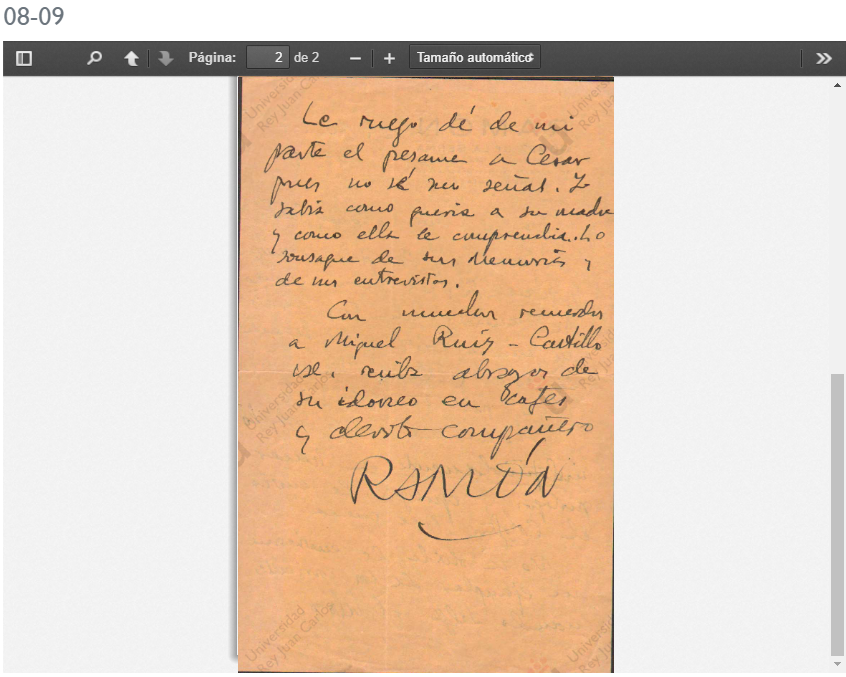 08-09
Página: 2 de 2 Tamaño automático
Le ruego dé de mi
parte el pésame a Cesar
pues no sé sus señas. Yo
sabía como quería a su madre
y como ella le comprendía. Lo
sonsaqué de sus Memorias y
de sus entrevistas.
Con muchos recuerdos
a Miguel Ruiz-Castillo
vd. reciba abrazos de
su idoneo en cafés
y devoto compañero
RAMÓN
Universidad
Rey Juan Carlos
Universidad
Rey Juan Carlos
Universidad
Rey Juan Carlos